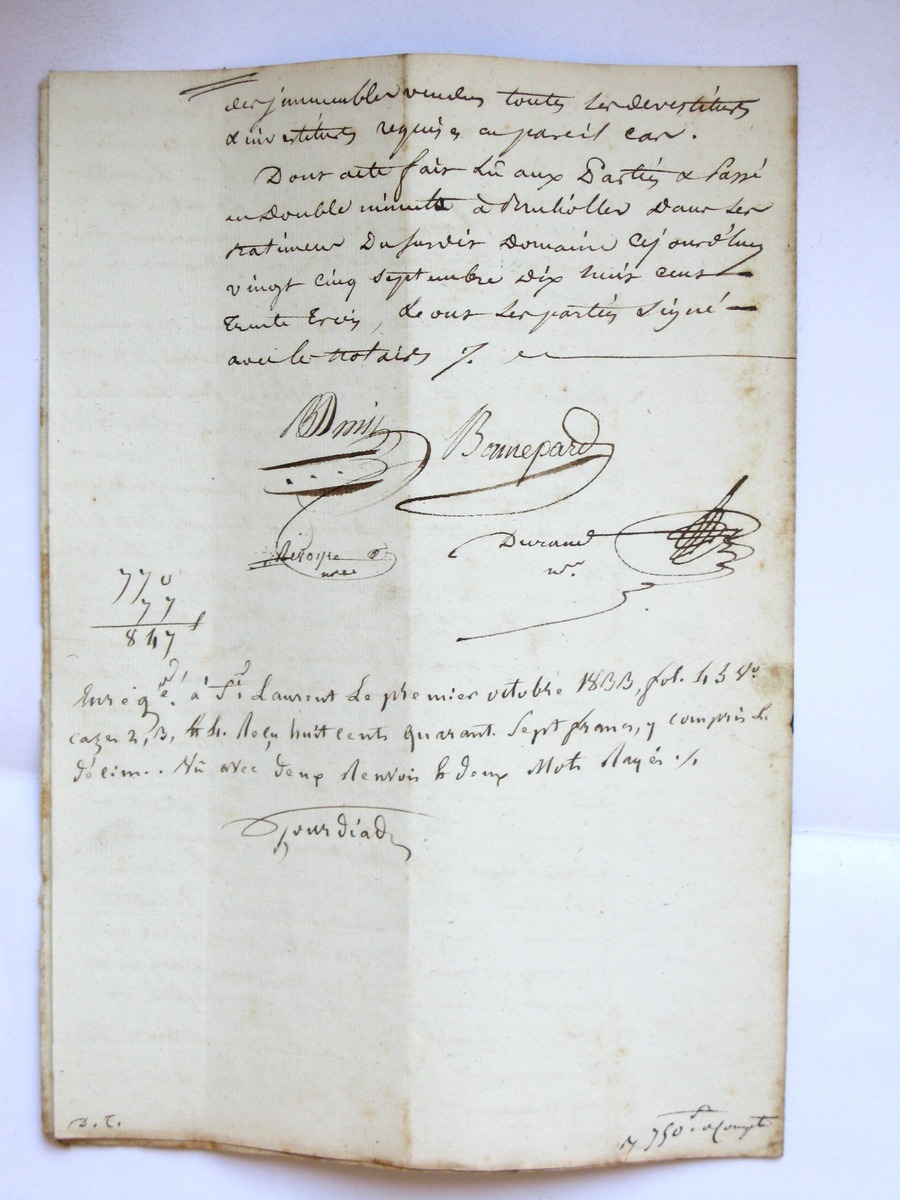 des jmmeubles vendus toutes les devestitures
& investitures requises en pareil cas.
Dont acte fait Lû aux Parties & Passé
en Double minute à dans les
Batimens Du susdit Domaine Cejourd'huy
vingt cinq septembre dix huit cent
trente trois, & ont les parties signé
avec les notaires
Bonnepard
Durand
nre
770
77
847
Enregé. à St. Laurent Le premier octobre 1833, fol. 45 Vo
cazes 2, 3, & 4. Reçu huit cents quarant. Sept francs, y compris le
décim.. Vû avec deux Renvois & deux Mots Rayés ./.
Jourdiad
D. T.